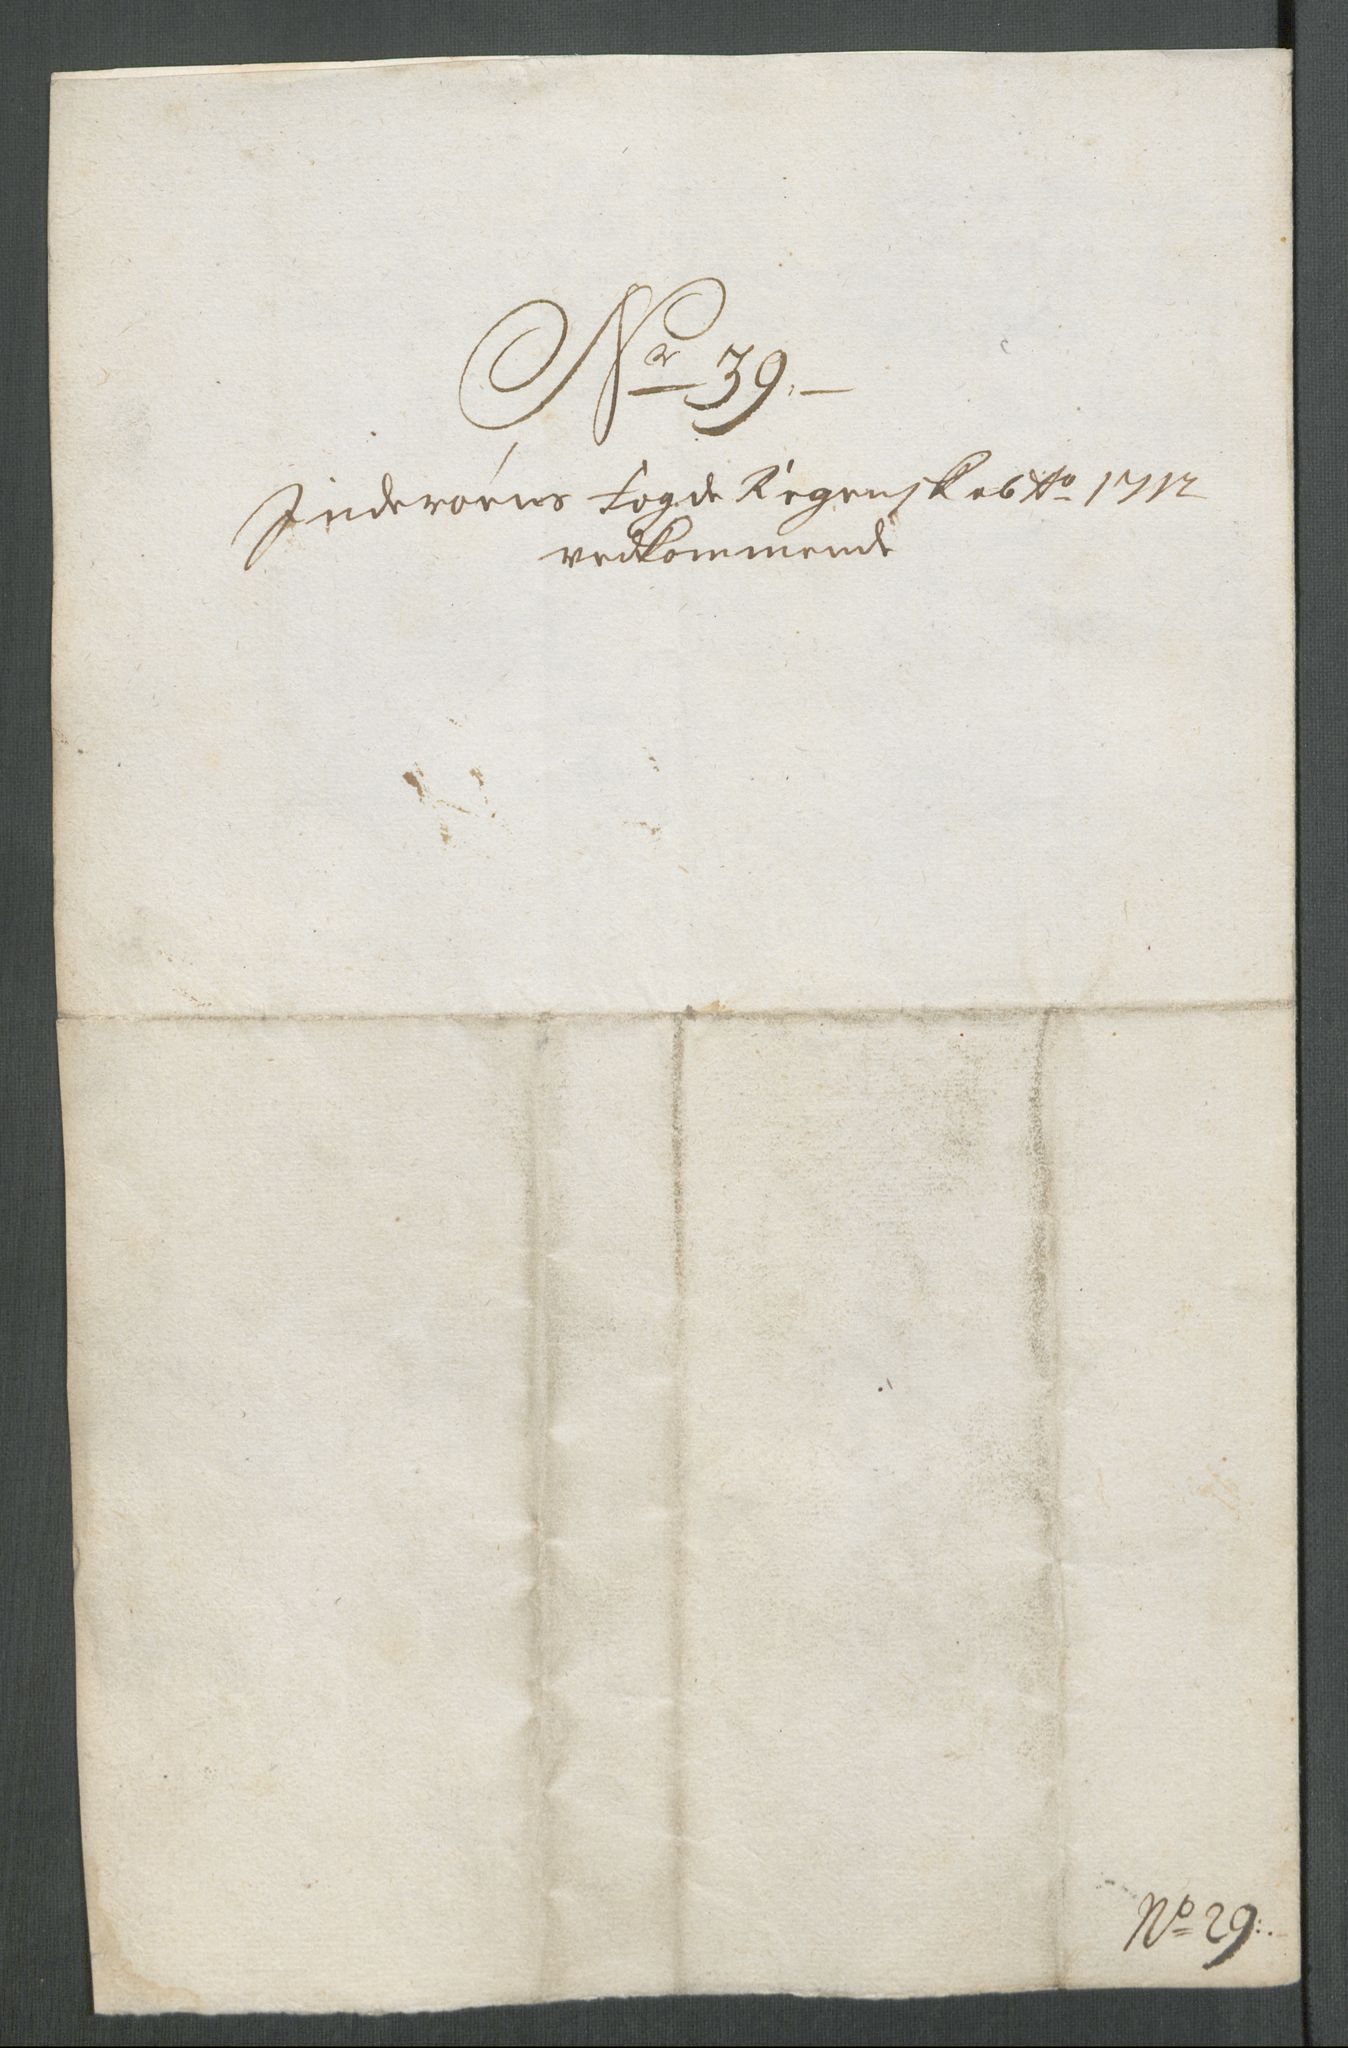 Nr 39.
Inderøens Fogde Regenskab Ao 1712
vedkommende
No 29: